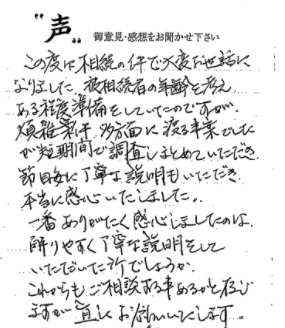 "声"
御意見・感想をお聞かせ下さい
この度は相続の件で大変お世話に
なりました。被相続者の年齢を考え
ある程度準備をしていたのですが
煩雑案件、多方面に渡る事業でした
が短期間で調査しまとめていただき、
節目毎に丁寧な説明もいただき
本当に感心いたしました。
一番ありがたく感心しましたのは、
解りやすく丁寧な説明をして
いただいた所でしょうか。
これからもご相談する事あるかと存じ
ますが宜しくお願いいたします。